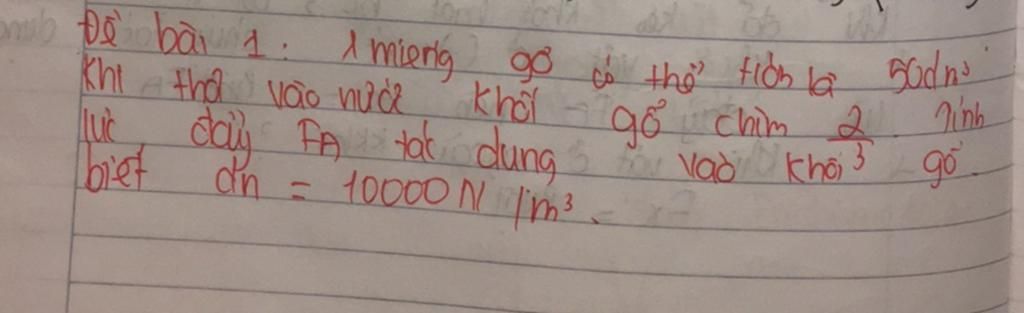 Đề bài 1. 1 miếng gỗ có thể tích là 50dm³
Khi thả vào nước khối gỗ chìm 2/3. Tính
lực đẩy FA tác dụng vào khối gỗ.
biết dn = 10000N/m³.